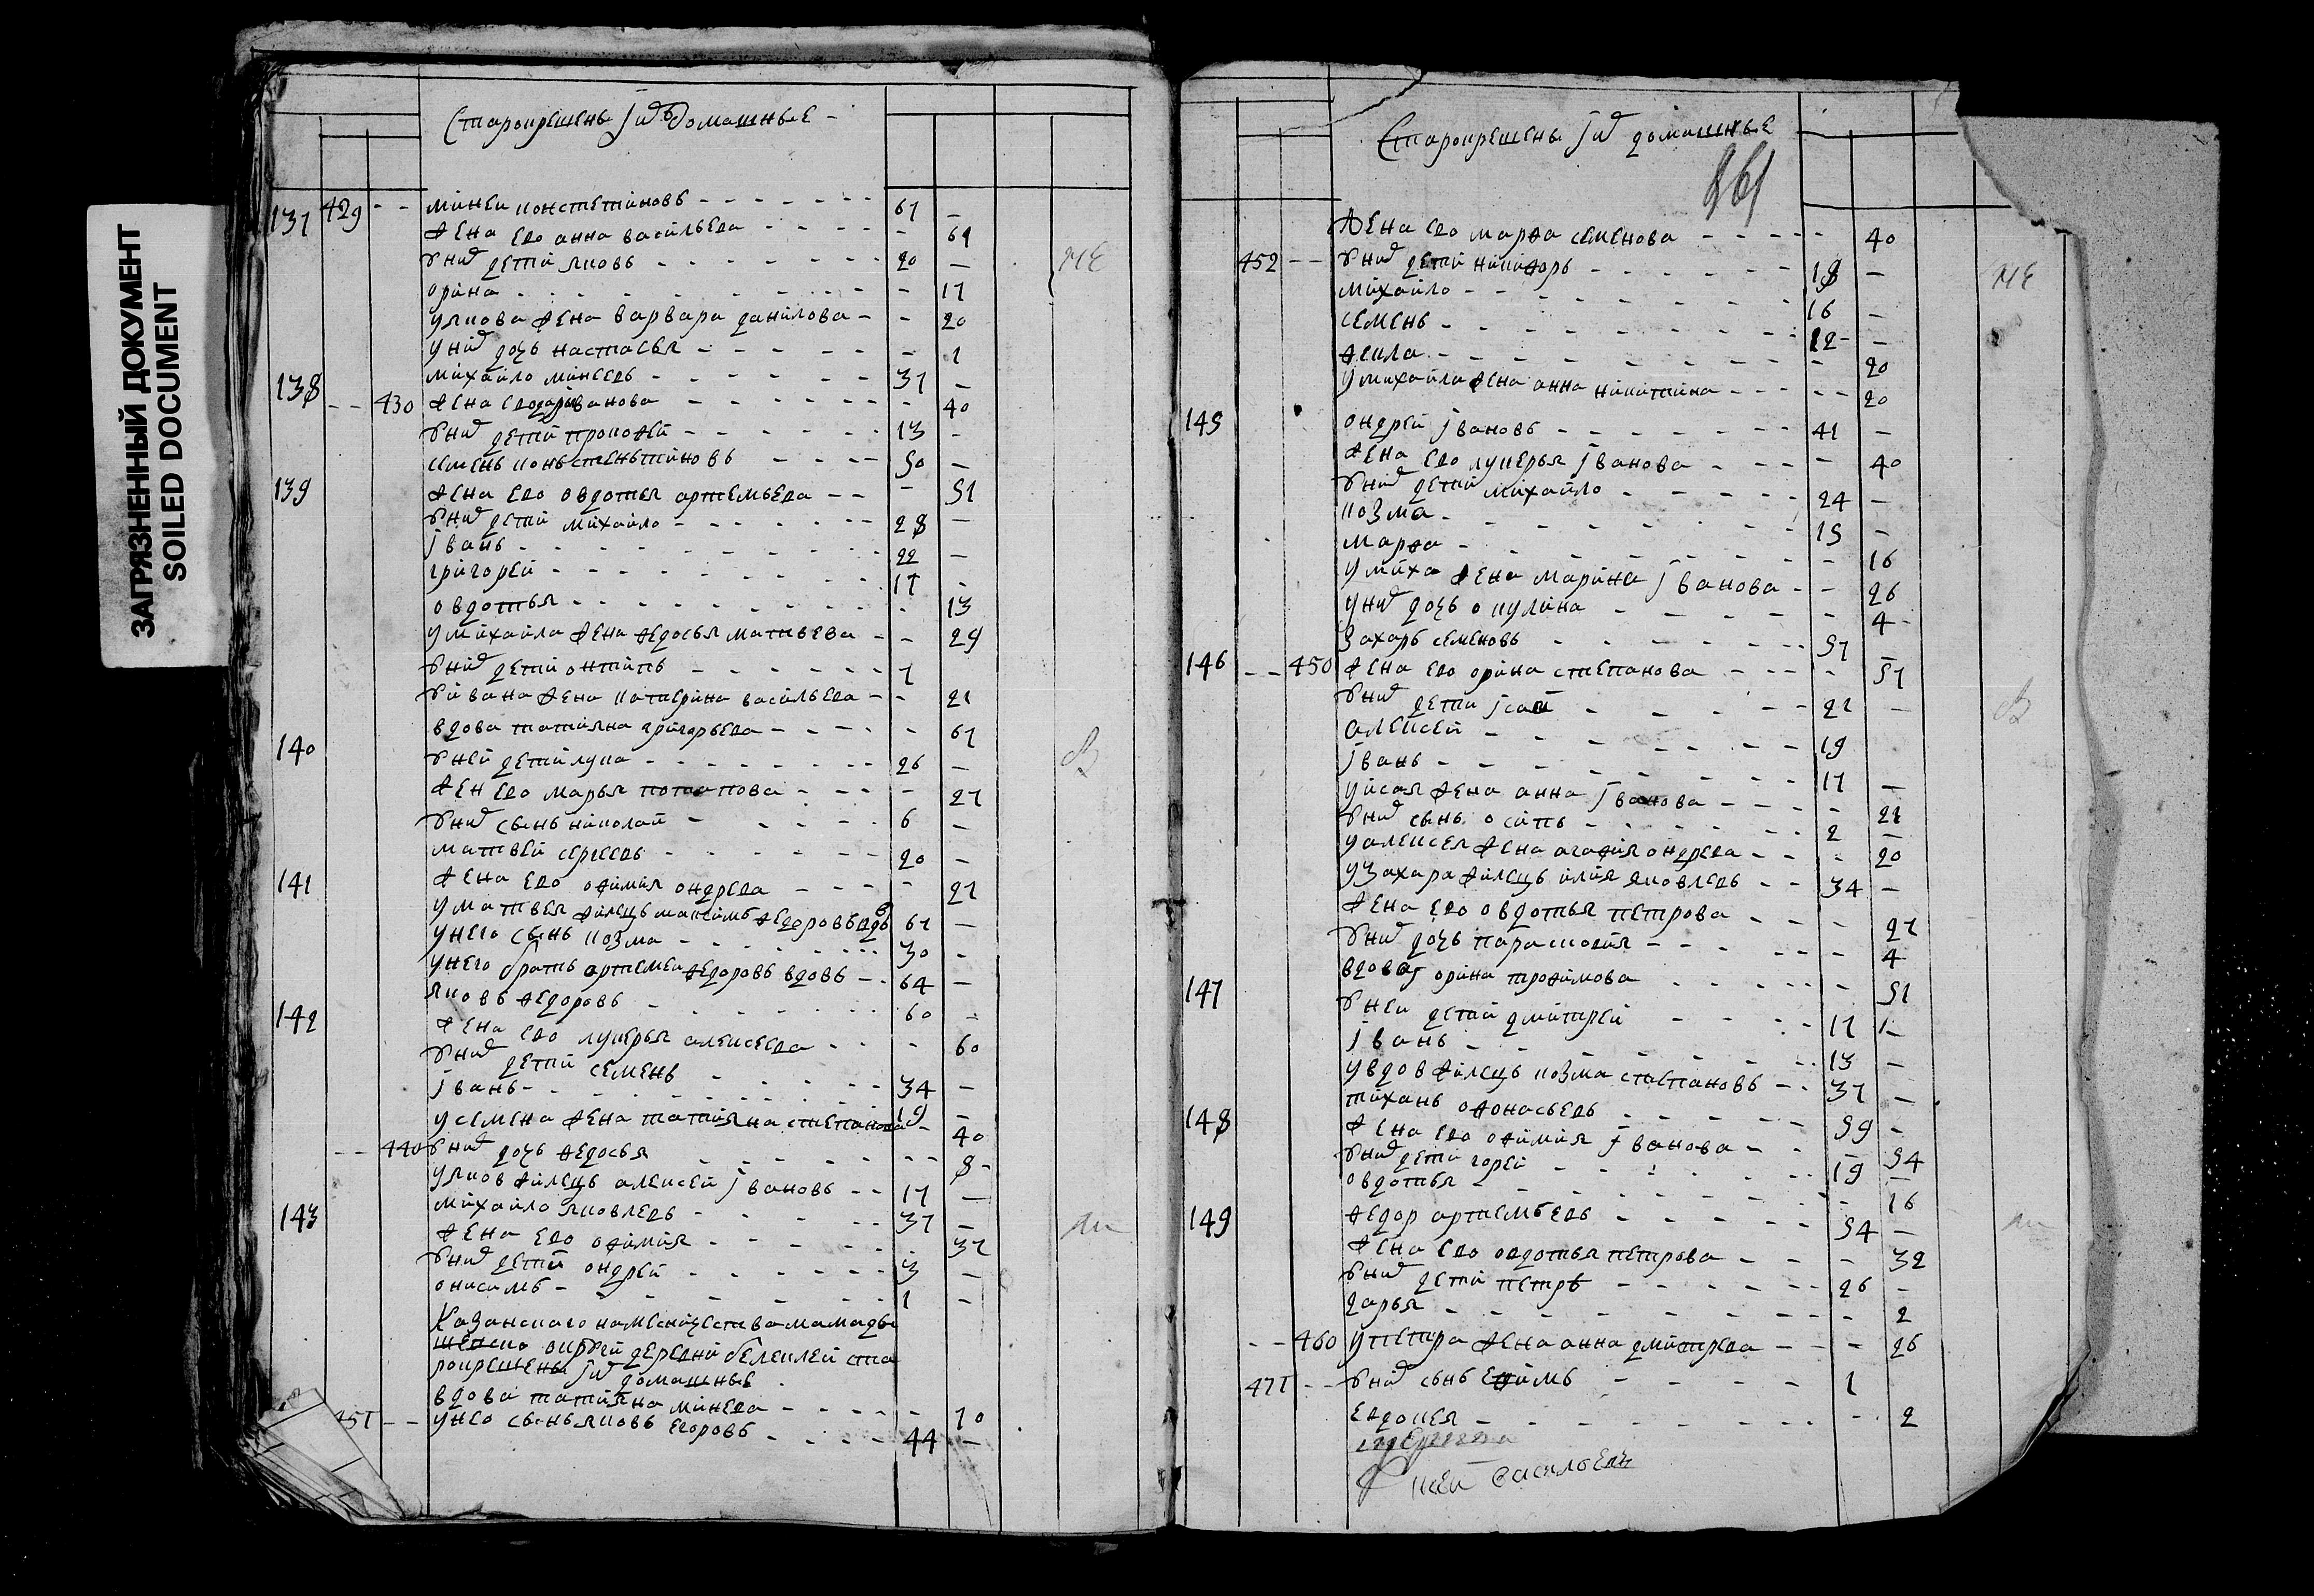 ЗАГРЯЗНЕННЫЙ ДОКУМЕНТ
SOILED DOCUMENT
Старокрещены и их домашные
137 429 Миней констетинов 67
жена ево анна васильева 69
у них дети яков 20
орина 17
у якова жена варвара данилова 20
у них дочь настасья 1
138 михайло минеев 37
430 жена ево иванова 40
у них дети прокофей 13
139 семен констентинов 50
жена ево овдотья артемьева 51
у них дети михайло 28
иван 22
григорей 17
овдотья 13
у михайла жена федосья матвеева 29
у них дети онтип 7
у ивана жена катерина васильева 21
140 вдова татияна григорьева 67
у ней дети лука 26
жен ево марья потапова 27
у них сын николай 6
141 матвей сергеев 20
жена ево офимия ондреева 21
у матвея жилец максим федоров вдов 61
у него сын козма 30
у него брат артемей федоров вдов 64
142 яков федоров 60
жена ево лукерья алексеева 60
у них дети семен 34
иван 19
у семена жена татияна степанова 40
440 у них дочь федосья 8
у яков жилец алексей иванов 17
143 михайло яковлев 37
жена ево офимия 32
у них дети ондрей 3
онисим 1
Казанскаго наместничества мамады
шенской округи деревни белеклей ста
рокрещены и их домашные
вдова татияна минеева 70
451 у нее сын яков егоров 44
Старокрещены и их домашные
261
жена ево марфа семенова 40
452 у них дети никифор 18
михайло 16
семен 12
фекла 20
у михайла жена анна никитина 20
145 ондрей иванов 41
жена ево лукерья иванова 40
у них дети михайло 24
козма 15
марфа 16
у миха жена марина иванова 26
у них дочь окулина 4
146 захар семенов 57
450 жена ево орина степанова 57
у них дети исай 22
алексей 19
иван 17
у исая жена анна иванова 21
у них сын осип 2
у алексея жена агафия ондреева 20
у захара жилец илия яковлев 34
жена ево овдотья петрова 27
у них дочь парасковия 4
147 вдова орина трофимова 51
у ней дети дмитрей 17
иван 13
у вдов жилец козма степанов 37
148 тихан офонасьев 59
жена ево офимия иванова 54
у них дети 19
овдотья 16
149 федор артемьев 54
жена ево овдотья петрова 32
у них дети петр 26
дарья 2
460 у петра жена анна дмитреева 26
471 у них сын ефим 1
евдокея 2
васильев